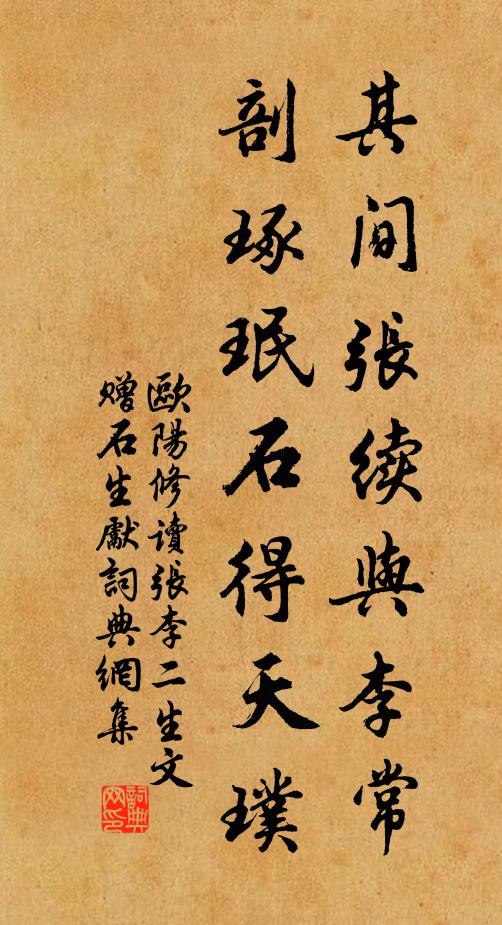 其間張續與李常
剖琢珉石得天璞
歐陽修讀張李二生文
贈石生獻詞典網集
詞典網印